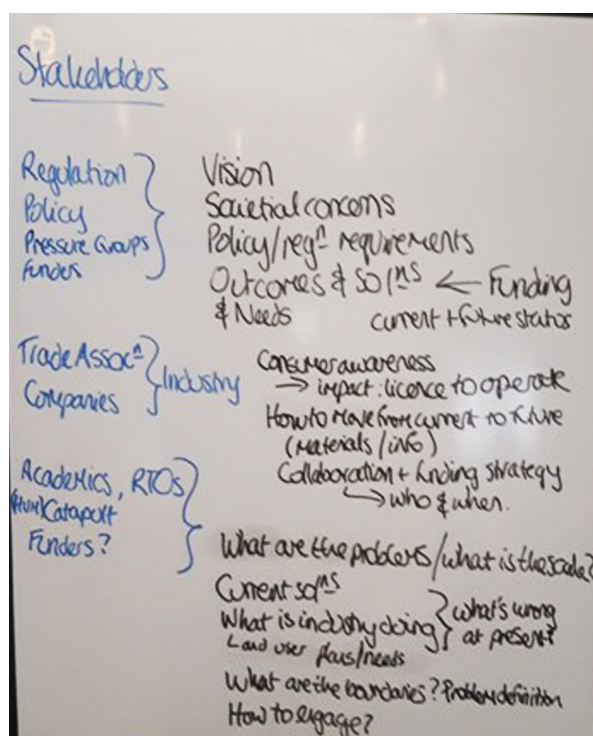 Stakeholders
Regulation
Policy
Pressure Groups
Funders
Vision
Societial concerns
Policy/regⁿ requirements
Outcomes & solⁿˢ ← Funding
& Needs current + future status
Trade Assocⁿ
Companies
Industry
Consumer awareness
→ impact : licence to operate
How to move from current to future
(materials / info)
Collaboration + funding strategy
↳ who & when.
Academics, RTOs
(HVM) Catapult
Funders?
What are the problems / what is the scale?
Current solⁿˢ
What is industry doing
Land user plans/needs
what's wrong
at present?
What are the boundaries? Problem definition
How to engage?